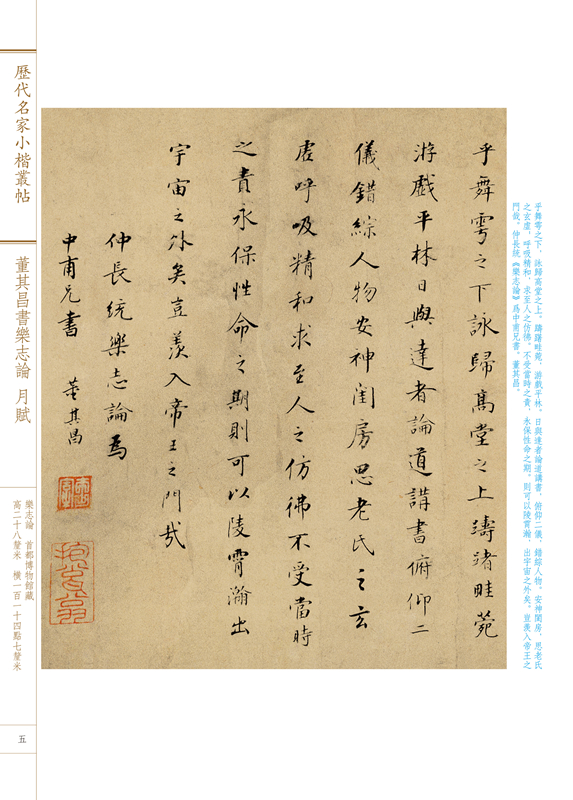 乎舞雩之下，詠歸高堂之上。躊躇畦菀，游戲平林。日與達者論道講書，俯仰二儀，錯綜人物。安神閨房，思老氏
之玄虛，呼吸精和，求至人之仿彿。不受當時之責，永保性命之期。則可以陵霄瀚，出宇宙之外矣。豈羨入帝王之
門哉。仲長統《樂志論》爲中甫兄書。董其昌。
乎舞雩之下詠歸高堂之上濤渚畦菀
游戲平林日與達者論道講書俯仰二
儀錯綜人物安神閨房思老氏之玄
虛呼吸精和求至人之仿彿不受當時
之責永保性命之期則可以陵霄瀚出
宇宙之外矣豈羨入帝王之門哉
仲長統樂志論爲
中甫兄書 董其昌
歷代名家小楷叢帖
董其昌書樂志論 月賦
樂志論 首都博物館藏
高二十八釐米 橫一百一十四點七釐米
五